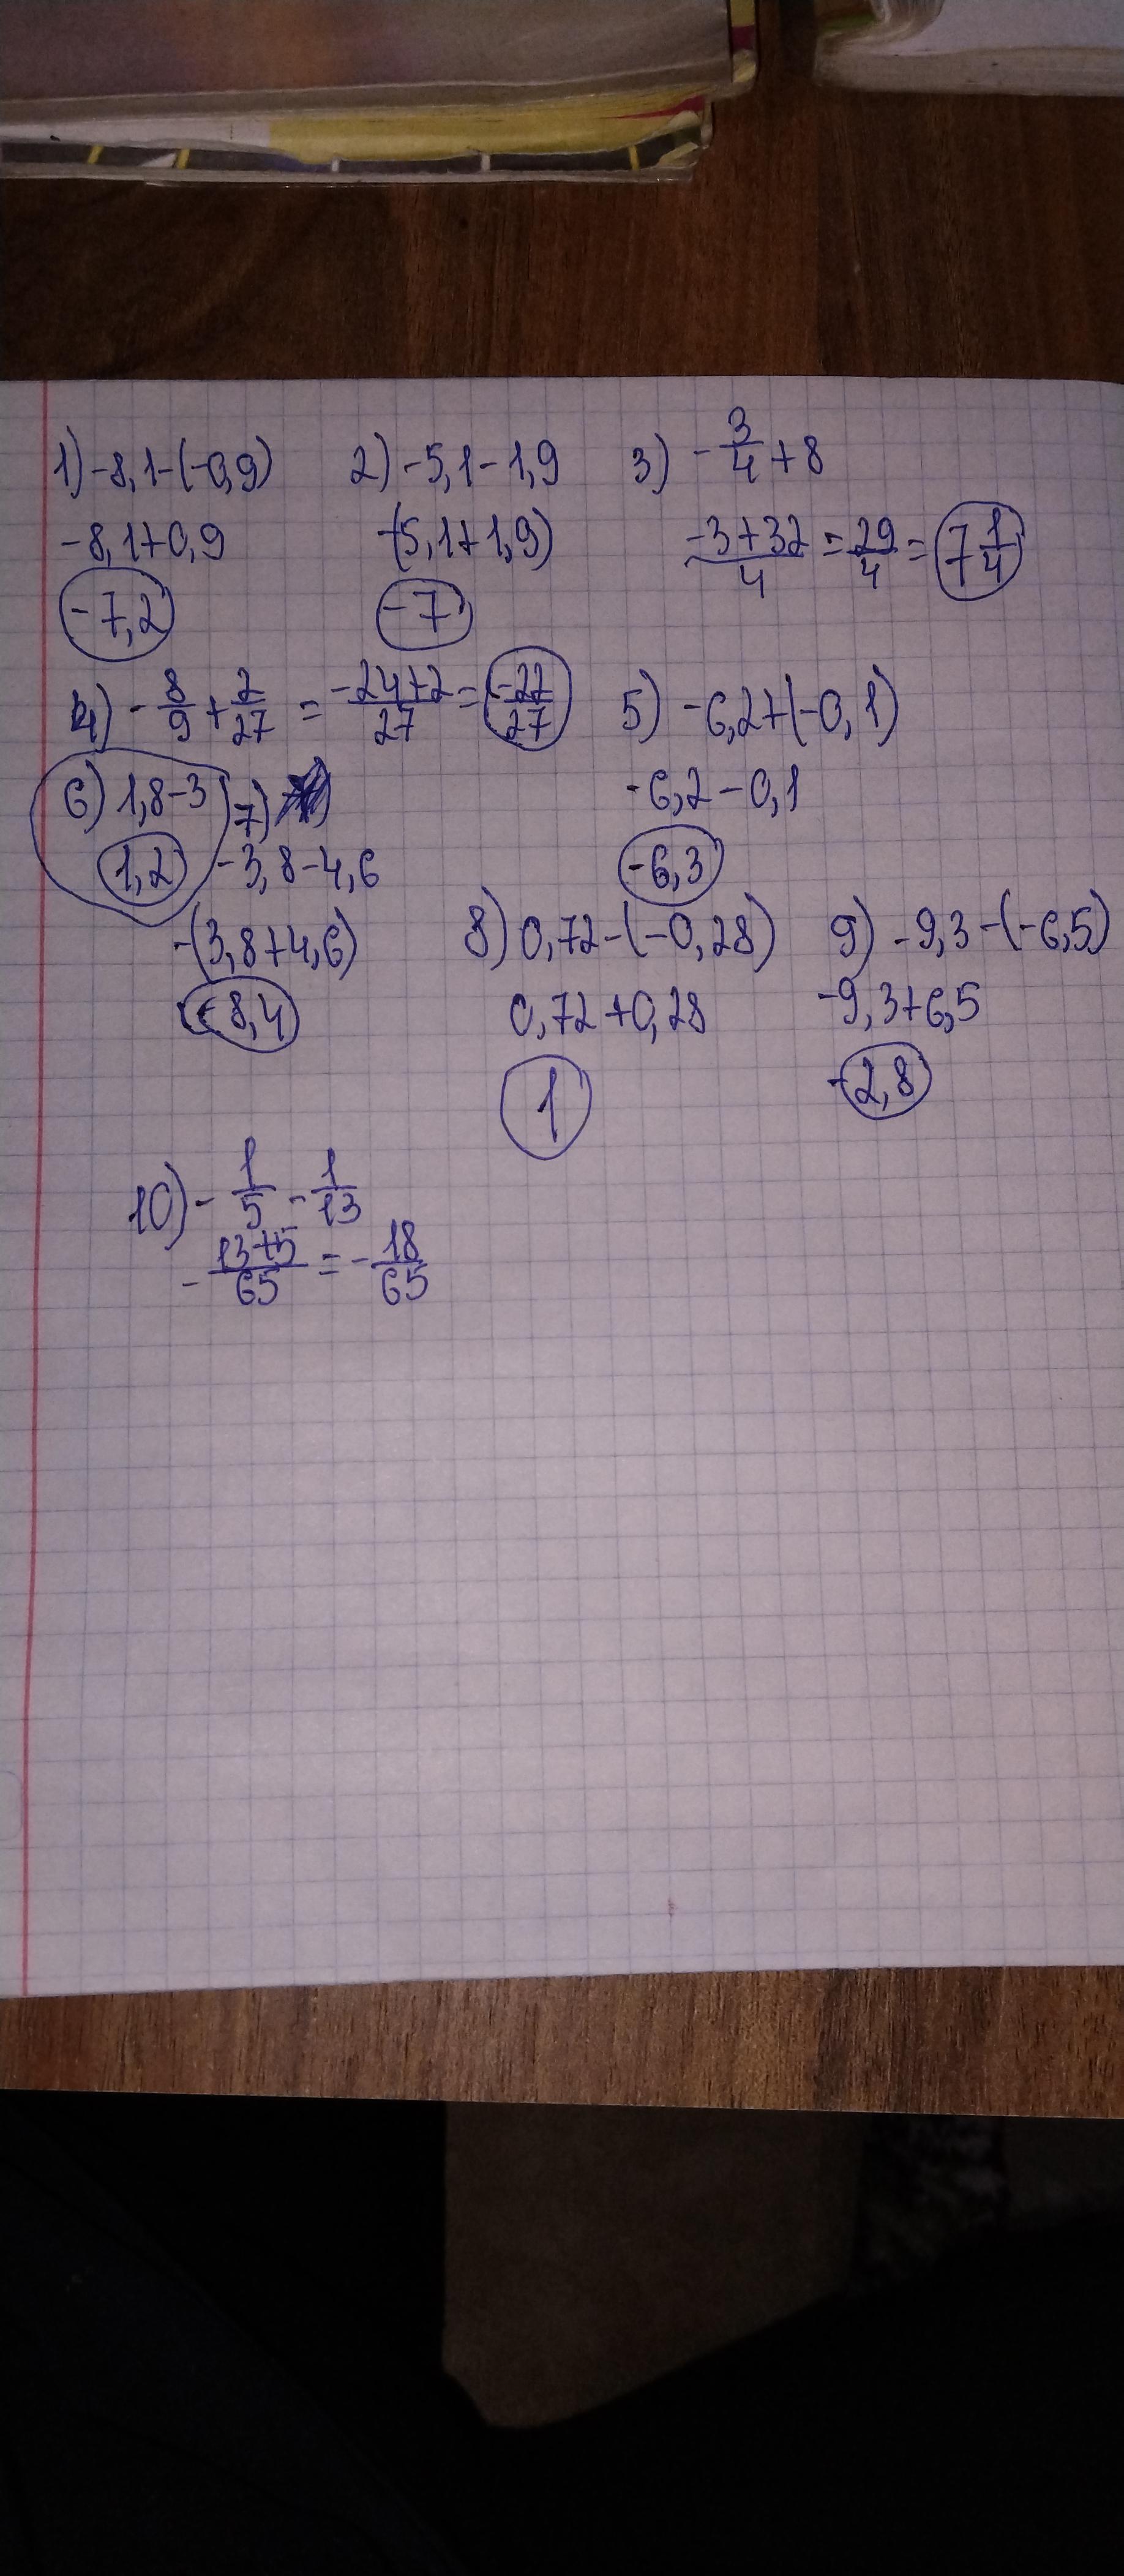 1) -8,1-(-0,9) 2) -5,1-1,9 3) -3/4+8
-8,1+0,9 -(5,1+1,9) (-3+32)/4 = 29/4 = 7 1/4
-7,2 -7
4) -8/9+2/27 = (-24+2)/27 = -22/27 5) -6,2+(-0,1)
6) 1,8-3 7) -6,2-0,1
1,2 -3,8-4,6 -6,3
-(3,8+4,6) 8) 0,72-(-0,28) 9) -9,3-(-6,5)
-8,4 0,72+0,28 -9,3+6,5
1 -2,8
10) -1/5-1/13
-(13+5)/65 = -18/65